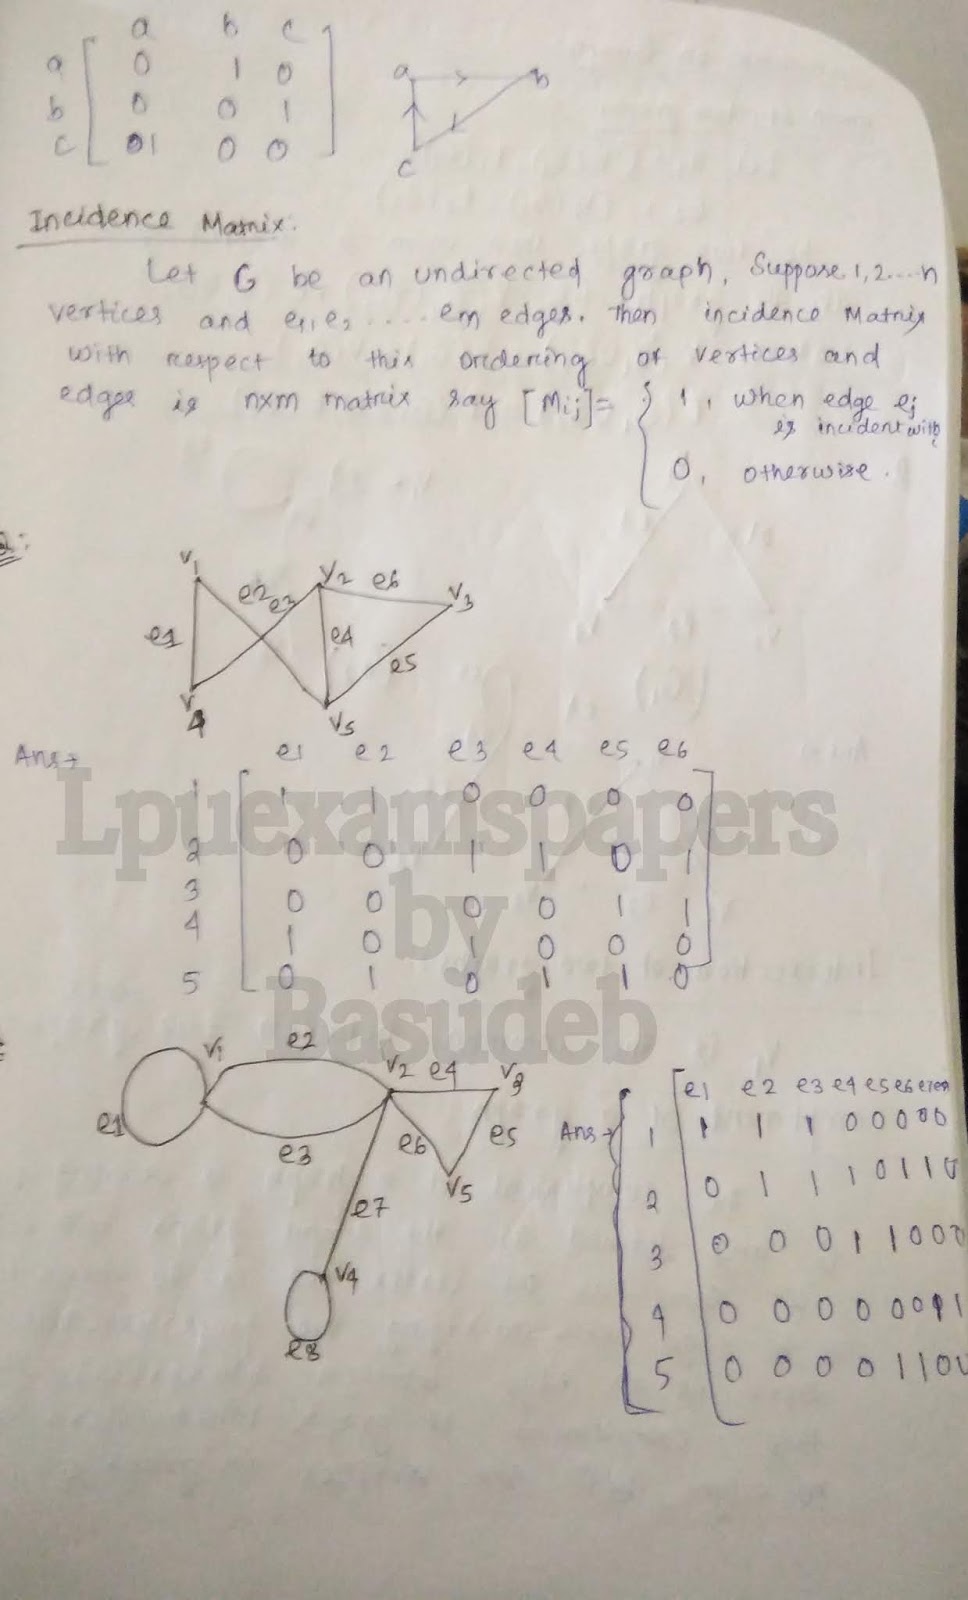 a b c
a 0 1 0
b 0 0 1
c 01 0 0
a b
c
Incidence Matrix.
Let G be an undirected graph, Suppose 1,2....n
vertices and e1,e2 ..... em edges. Then incidence Matrix
with respect to this ordering of vertices and
edges is nxm matrix say [Mij]= { 1, when edge ej
is incident with
0, otherwise.
V1 e2 e3 V2 e6 V3
e1 e4 e5
V4 V5
Ans→ e1 e2 e3 e4 e5 e6
1 1 1 0 0 0 0
2 0 0 1 1 0 1
3 0 0 0 0 1 1
4 1 0 1 0 0 0
5 0 1 0 1 1 0
Lpuexamspapers
by
Basudeb
V1 e2 V2 e4 V3
e1 e3 e6 e5
V5
e7
V4
e8
Ans→ e1 e2 e3 e4 e5 e6 e7 e8
1 1 1 1 0 0 0 0 0
2 0 1 1 1 0 1 1 0
3 0 0 0 1 1 0 0 0
4 0 0 0 0 0 0 1 1
5 0 0 0 0 1 1 0 0